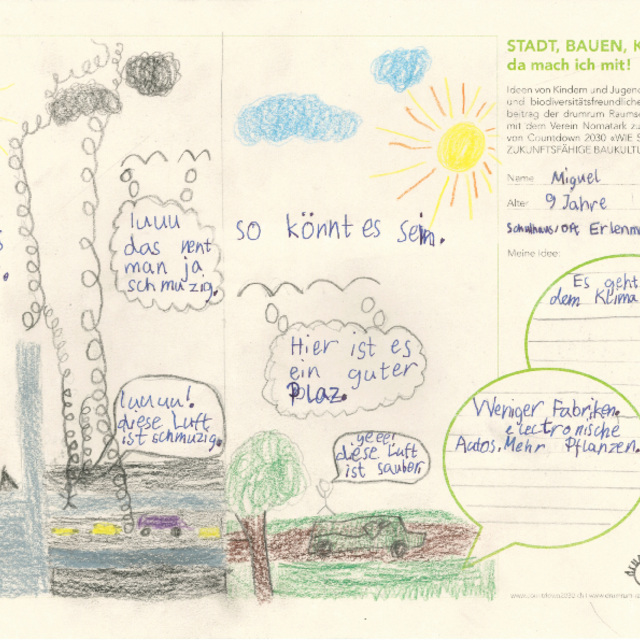 luuu
das nent
man ja
schmuzig.
luuuu!
diese Luft
ist schmuzig.
so könnt es sein.
Hier ist es
ein guter
Plaz.
yeee!
diese Luft
ist sauber.
STADT, BAUEN, K
da mach ich mit!
Ideen von Kindern und Jugen
und biodiversitätsfreundliche
beitrag der drumrum Raumsc
mit dem Verein Nomatark zu
von Countdown 2030 «WIE S
ZUKUNFTSFÄHIGE BAUKULTU
Name Miguel
Alter 9 Jahre
Schulhaus/Ort Erlenm
Meine Idee:
Es geht
dem Klima
Weniger Fabriken.
electronische
Autos. Mehr Pflanzen.